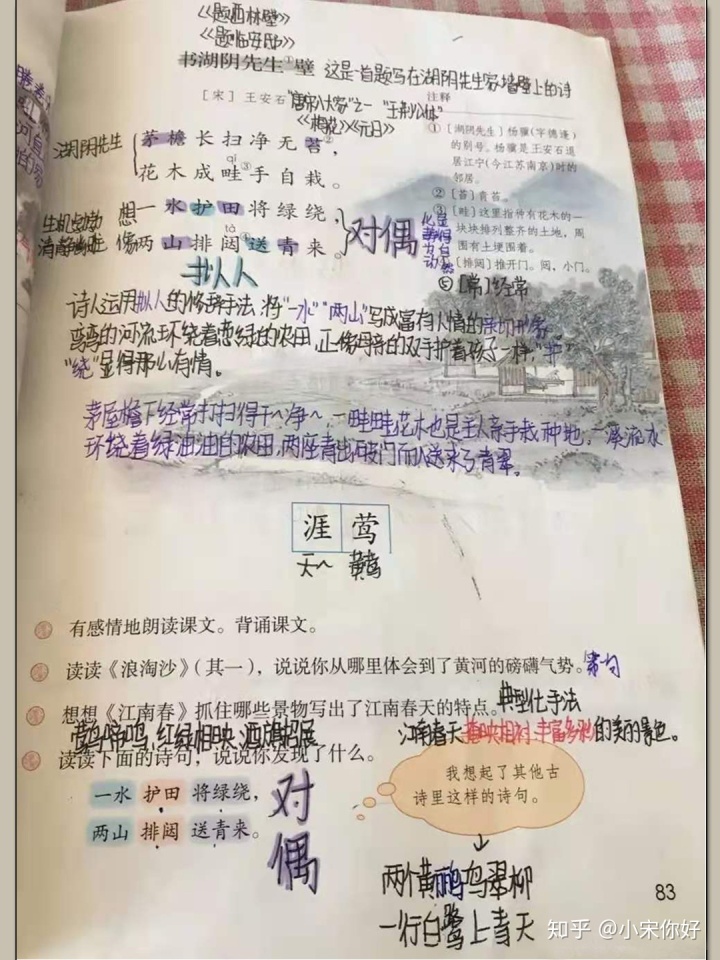 《题西林壁》
《题临安邸》
书湖阴先生①壁 这是一首题写在湖阴先生家墙壁上的诗
〔宋〕王安石 "唐宋八大家"之一 "王荆公体"
《梅花》《元日》
注释
湖阴先生
茅檐长扫净无苔②,
qì
花木成畦③手自栽。
一水护田将绿绕,
tà
两山排闼④送青来。
生机勃勃
清静幽雅
想
像
对偶
化静为动
拟人
①〔湖阴先生〕杨骥(字德逢)
的别号。杨骥是王安石退
居江宁(今江苏南京)时的
邻居。
②〔苔〕青苔。
③〔畦〕这里指种有花木的一
块块排列整齐的土地,周
围有土埂围着。
④〔排闼〕推开门。闼,小门。
⑤[常]经常
诗人运用拟人的修辞手法,将"一水""两山"写成富有人情的亲切形象,
弯弯的河流环绕着葱绿的农田,正像母亲的双手护着孩子一样,"护"
"绕"显得那么有情。
茅屋檐下经常打扫得干~净~,一畦畦花木也是主人亲手栽种地,一溪流水
环绕着绿油油的农田,两座青山破门而入送来了青翠。
涯 莺
天~ 黄莺
有感情地朗读课文。背诵课文。
读读《浪淘沙》(其一),说说你从哪里体会到了黄河的磅礴气势。第1句
想想《江南春》抓住哪些景物写出了江南春天的特点。典型化手法
莺鸟啼鸣、红绿相映、酒旗招展
江南春天 丰富多彩的美丽景色。
读读下面的诗句,说说你发现了什么。
一水 护田 将绿绕,
两山 排闼 送青来。
对偶
我想起了其他古
诗里这样的诗句。
两个黄鹂鸣翠柳
一行白鹭上青天
83
知乎 @小宋你好